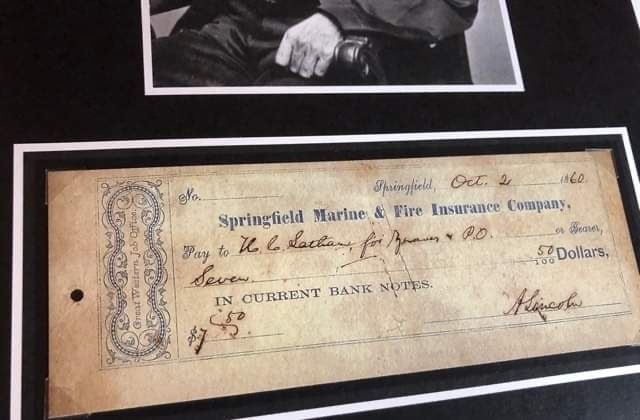 No.
Springfield, Oct. 2 1860.
Springfield Marine & Fire Insurance Company,
Pay to for & P.O. or Bearer,
Seven 50/100 Dollars,
IN CURRENT BANK NOTES.
$7.50
A Lincoln
Great Western Job Office.